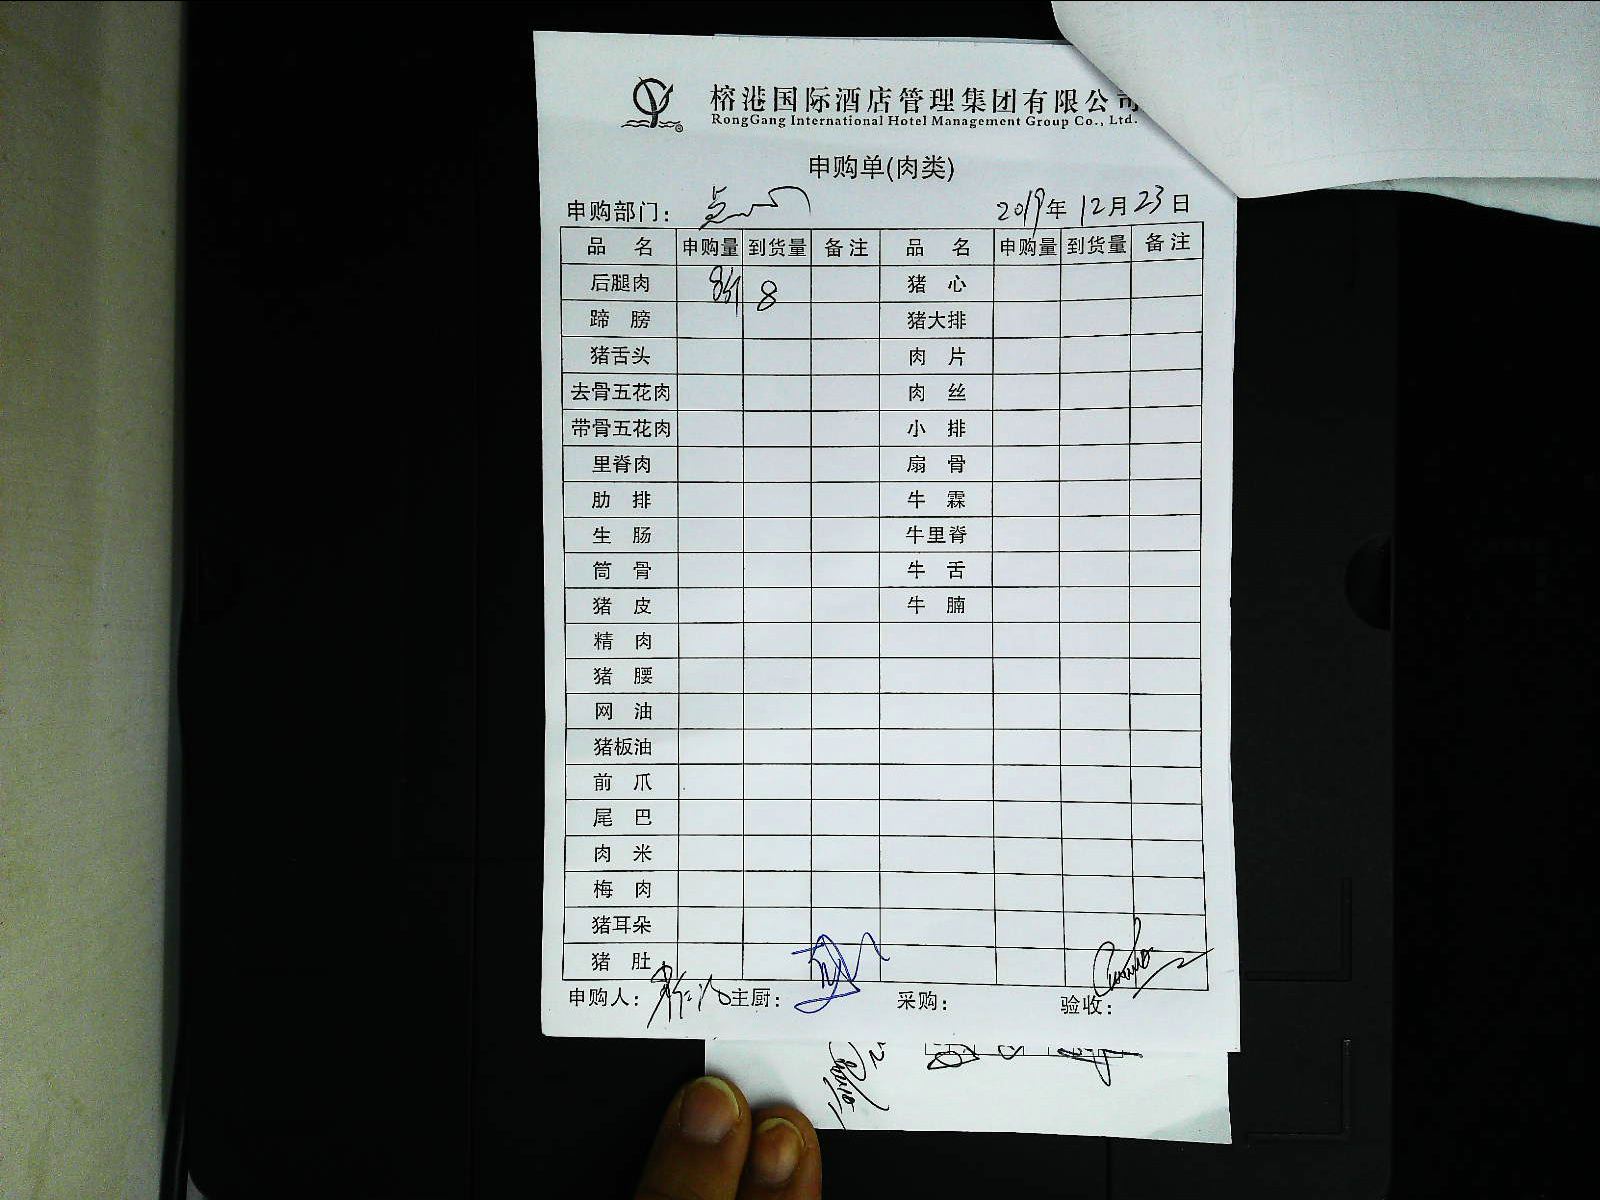 榕港国际酒店管理集团有限公司
RongGang International Hotel Management Group Co., Ltd.
申购单(肉类)
申购部门： 2019年12月23日
品 名 申购量 到货量 备注 品 名 申购量 到货量 备注
后腿肉 8斤 8 猪 心
蹄 膀 猪大排
猪舌头 肉 片
去骨五花肉 肉 丝
带骨五花肉 小 排
里脊肉 扇 骨
肋 排 牛 霖
生 肠 牛里脊
筒 骨 牛 舌
猪 皮 牛 腩
精 肉
猪 腰
网 油
猪板油
前 爪
尾 巴
肉 米
梅 肉
猪耳朵
猪 肚
申购人： 主厨： 采购： 验收：